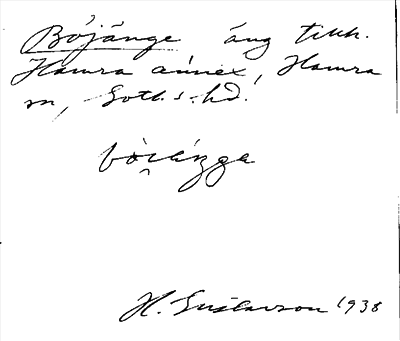 Böjänge äng tillh.
Hamra annex, Hamra
sn, Gotl. s. hd.
H. Gustavson 1938